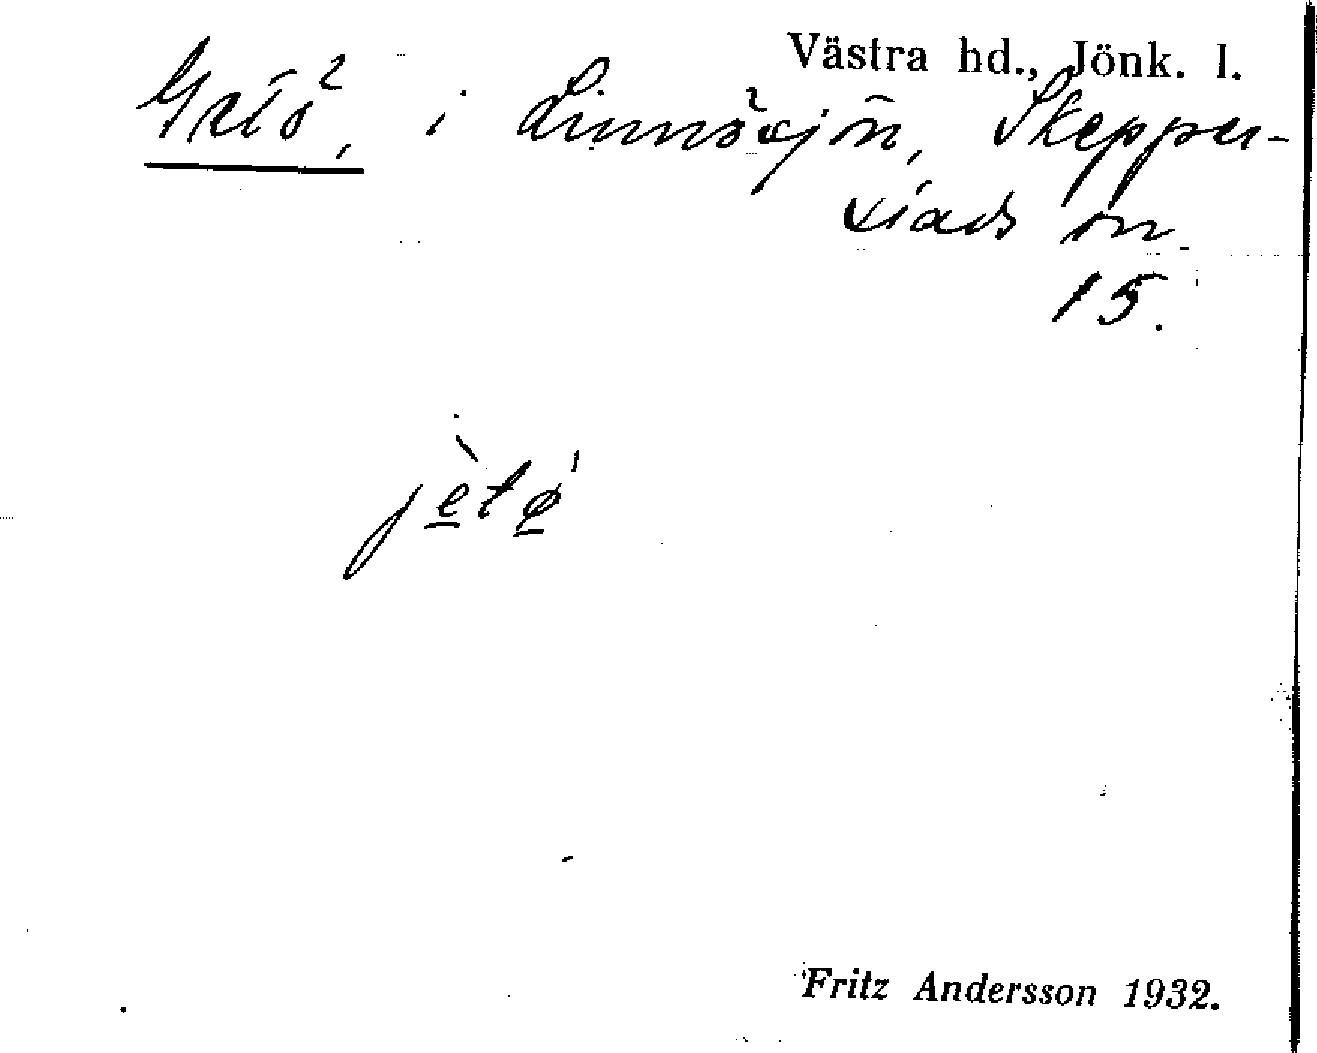 Västra hd., Jönk. l.
Getö, i Linnesjön, Skepper-
stads sn.
15.
jètǿ̱
Fritz Andersson 1932.